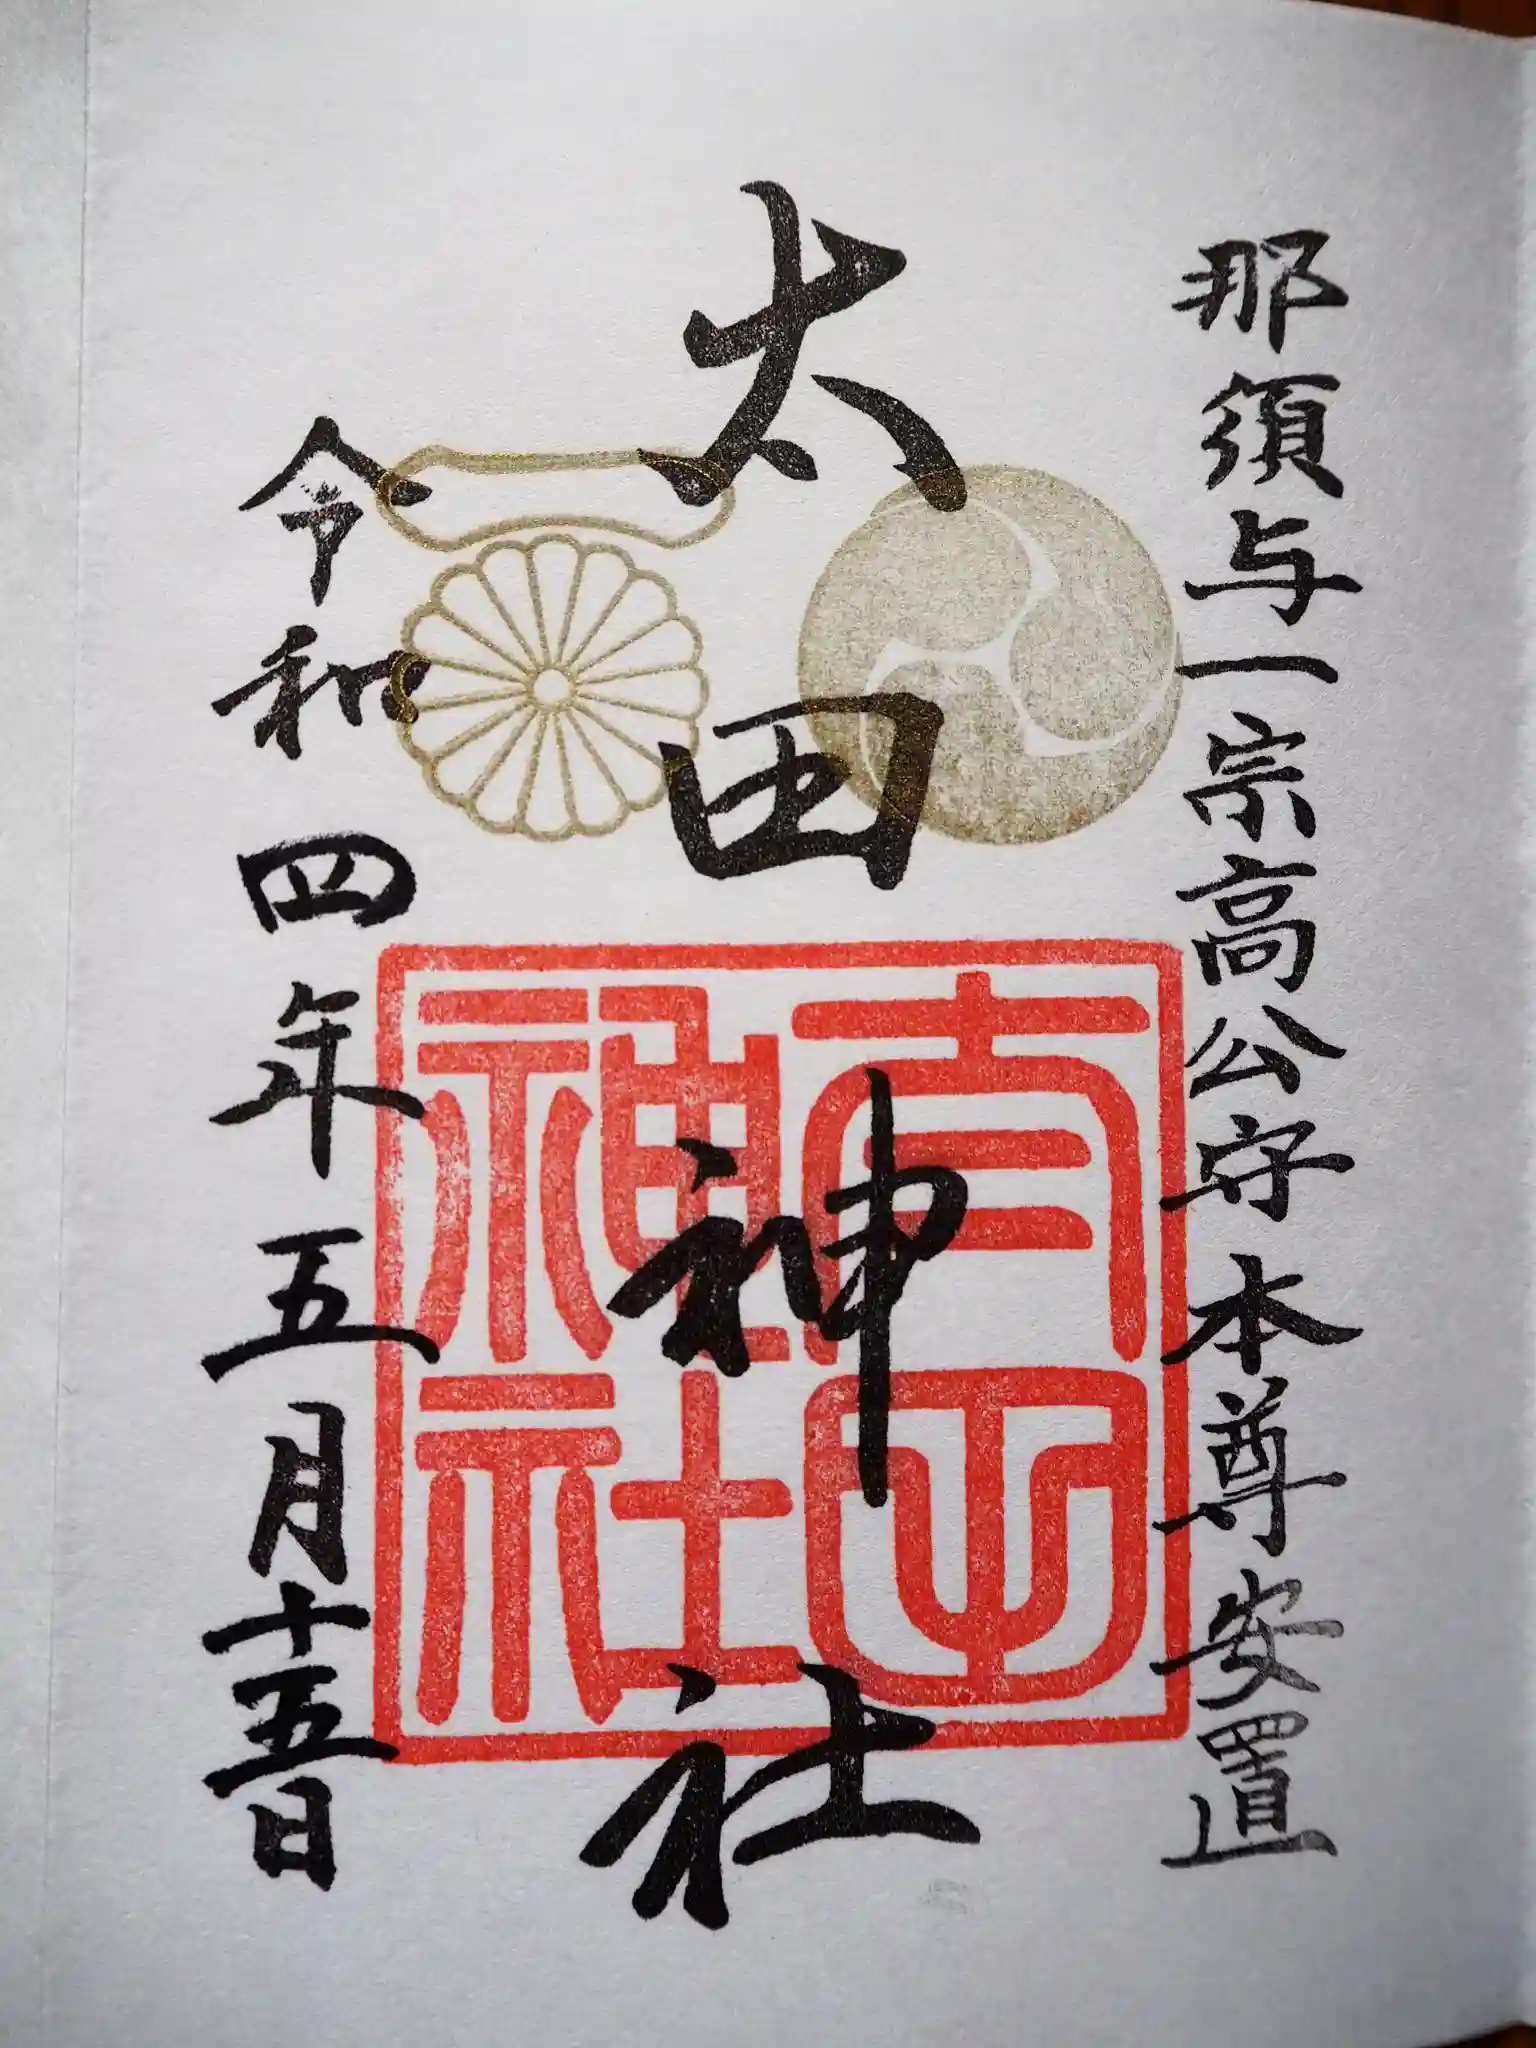 那須与一宗高公守本尊安置
太田神社
令和四年五月十五日